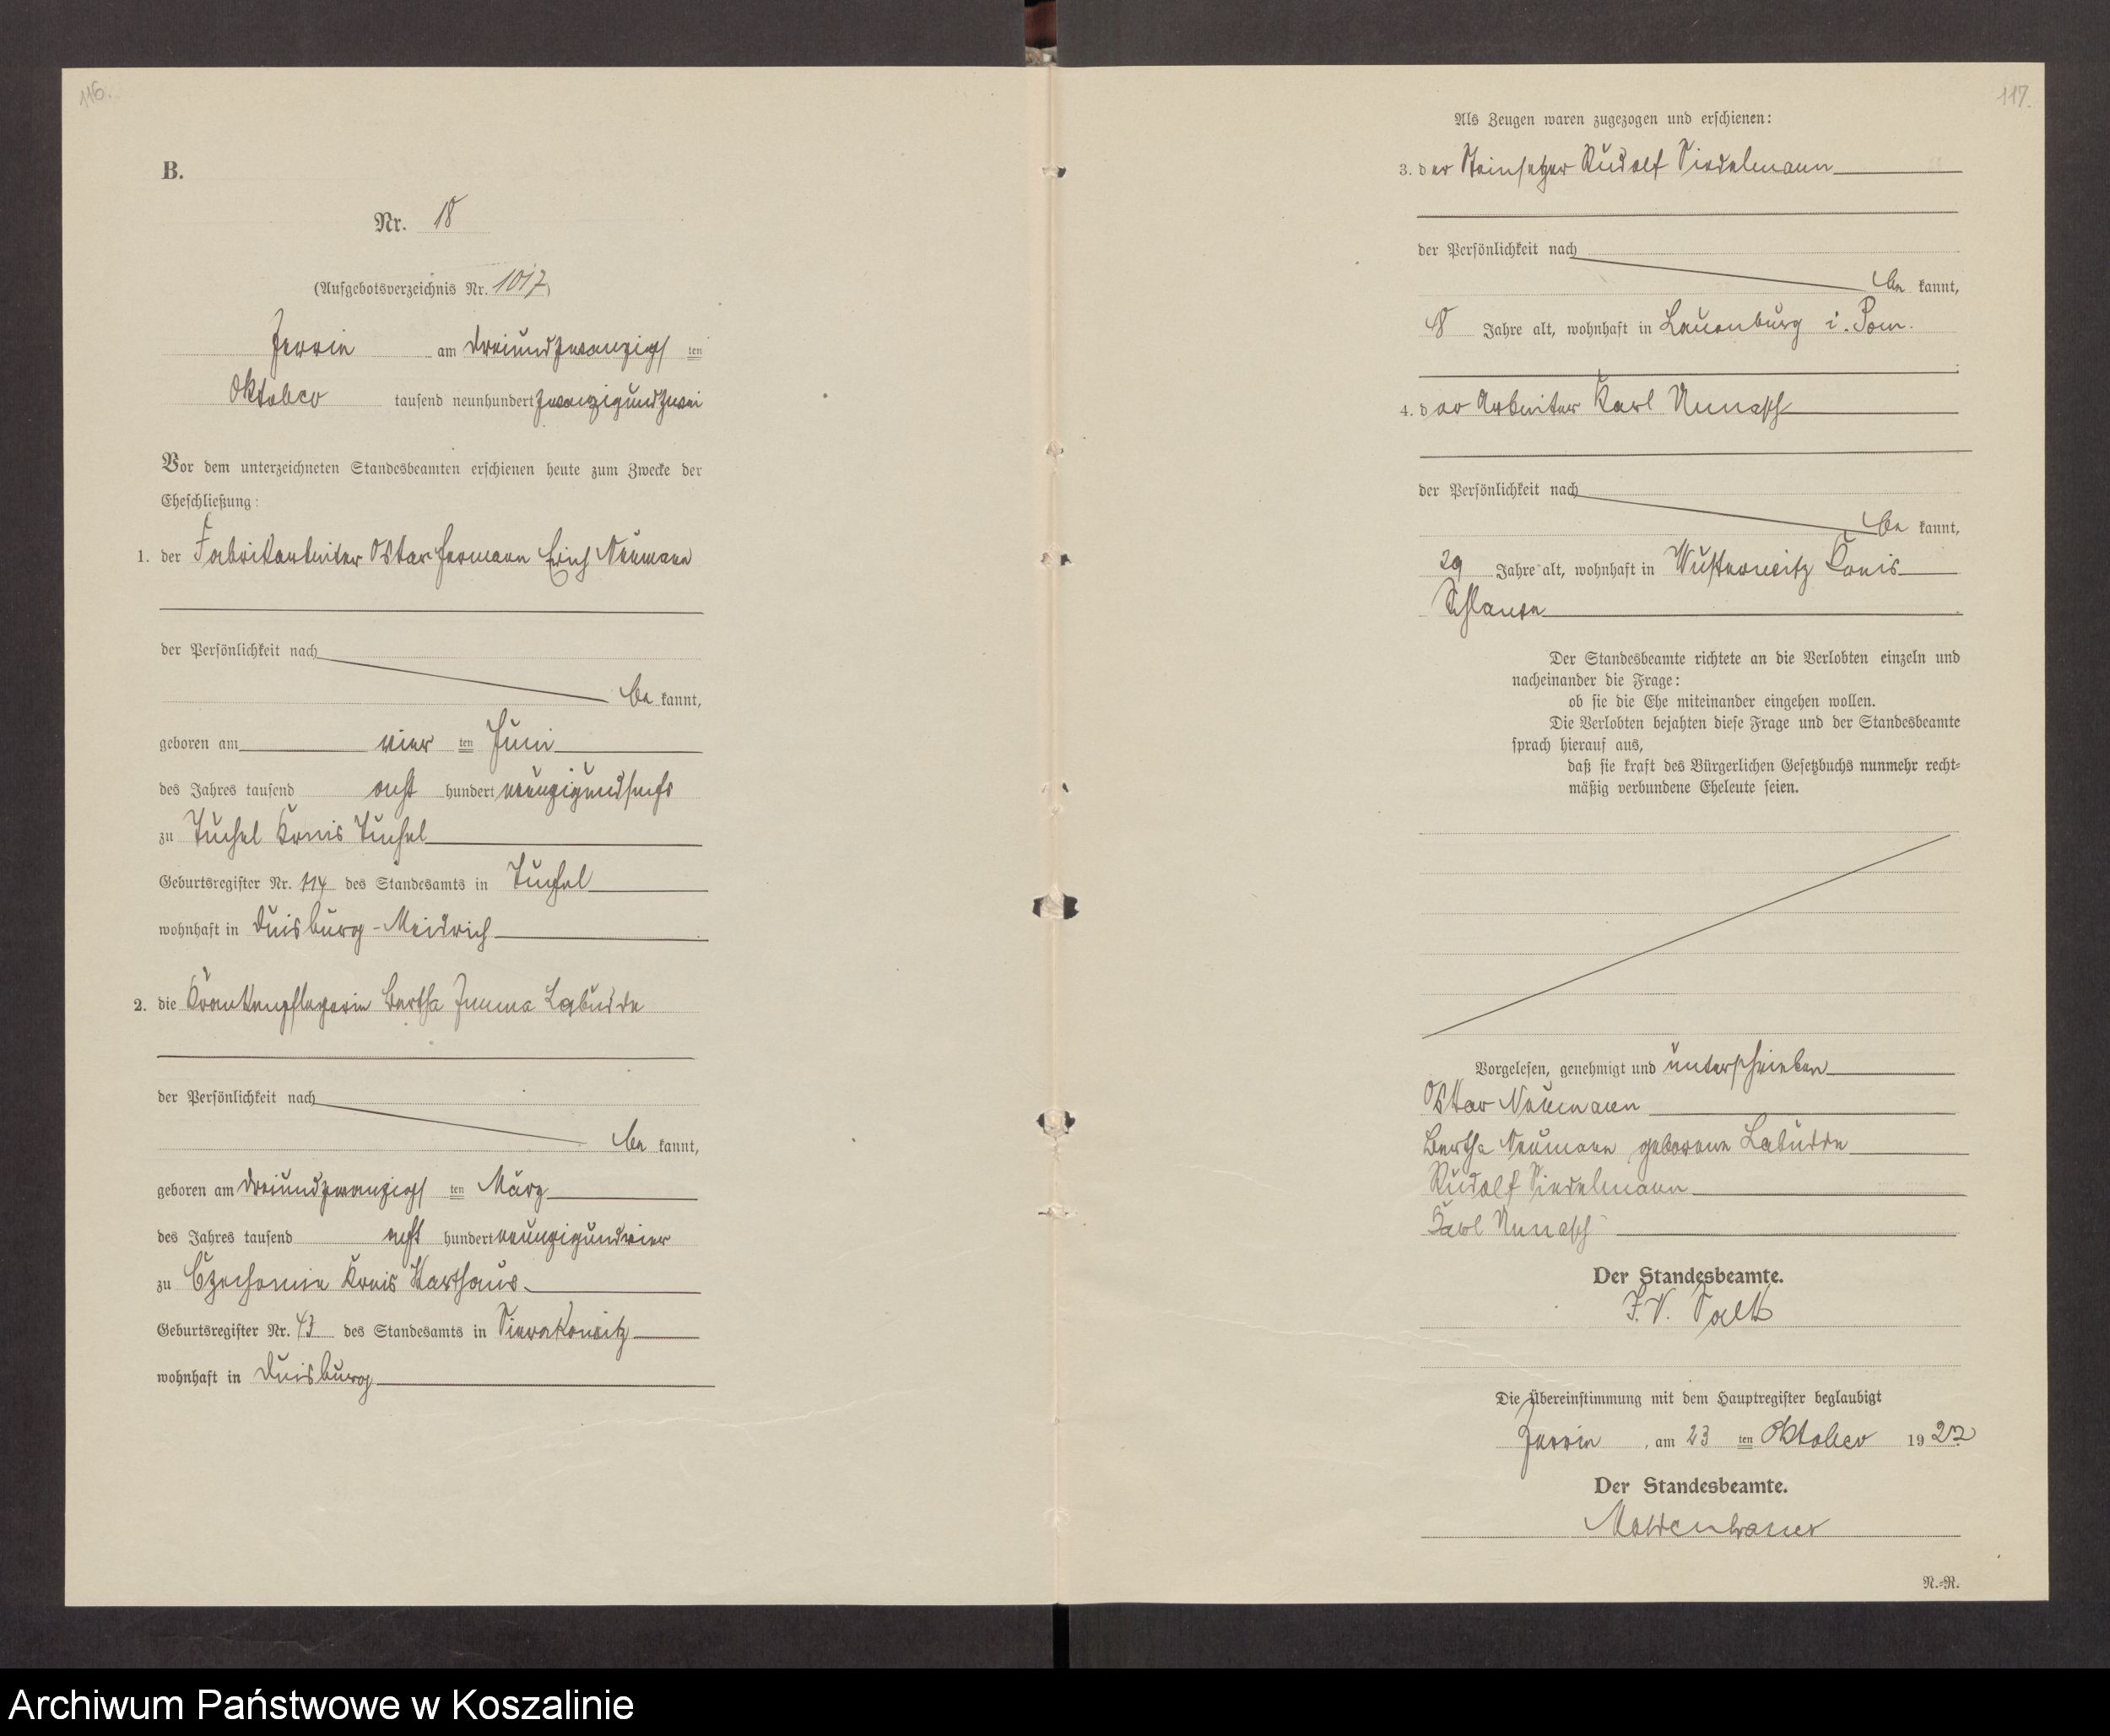 116.
B.
Nr. 18
(Aufgebotsverzeichnis Nr. 1017)
Jerrin am dreiundzwanzigsten
Oktober tausend neunhundert zwanzigundzwei
Vor dem unterzeichneten Standesbeamten erschienen heute zum Zwecke der
Eheschließung:
1. der Fabrikarbeiter Oskar Hermann Erich Neumann
der Persönlichkeit nach
be kannt,
geboren am vier ten Juni
des Jahres tausend acht hundert neunzigundsechs
zu Tuchel Kreis Tuchel
Geburtsregister Nr. 114 des Standesamts in Tuchel
wohnhaft in Duisburg-Meidrich
2. die Krankenpflegerin Bertha Labudde
der Persönlichkeit nach
be kannt,
geboren am dreiundzwanzigsten März
des Jahres tausend acht hundert neunzigundvier
zu Czechomie Kreis Karthaus
Geburtsregister Nr. 43 des Standesamts in Sierakowitz
wohnhaft in Duisburg
117.
Als Zeugen waren zugezogen und erschienen:
3. der Steinsetzer Rudolf Siedelmann
der Persönlichkeit nach
be kannt,
Jahre alt, wohnhaft in Lauenburg i. Pom.
4. der Arbeiter Karl
der Persönlichkeit nach
be kannt,
29 Jahre alt, wohnhaft in Wusterwitz Kreis
Schlawe
Der Standesbeamte richtete an die Verlobten einzeln und
nacheinander die Frage:
ob sie die Ehe miteinander eingehen wollen.
Die Verlobten bejahten diese Frage und der Standesbeamte
sprach hierauf aus,
daß sie kraft des Bürgerlichen Gesetzbuchs nunmehr recht-
mäßig verbundene Eheleute seien.
Vorgelesen, genehmigt und unterschrieben
Oskar Neumann
Bertha Neumann geborene Labudde
Rudolf Siedelmann
Karl
Der Standesbeamte.
J. V.
Die Übereinstimmung mit dem Hauptregister beglaubigt
Jerrin, am 23 ten Oktober 1922
Der Standesbeamte.
Moldenhauer
N.-R.
Archiwum Państwowe w Koszalinie